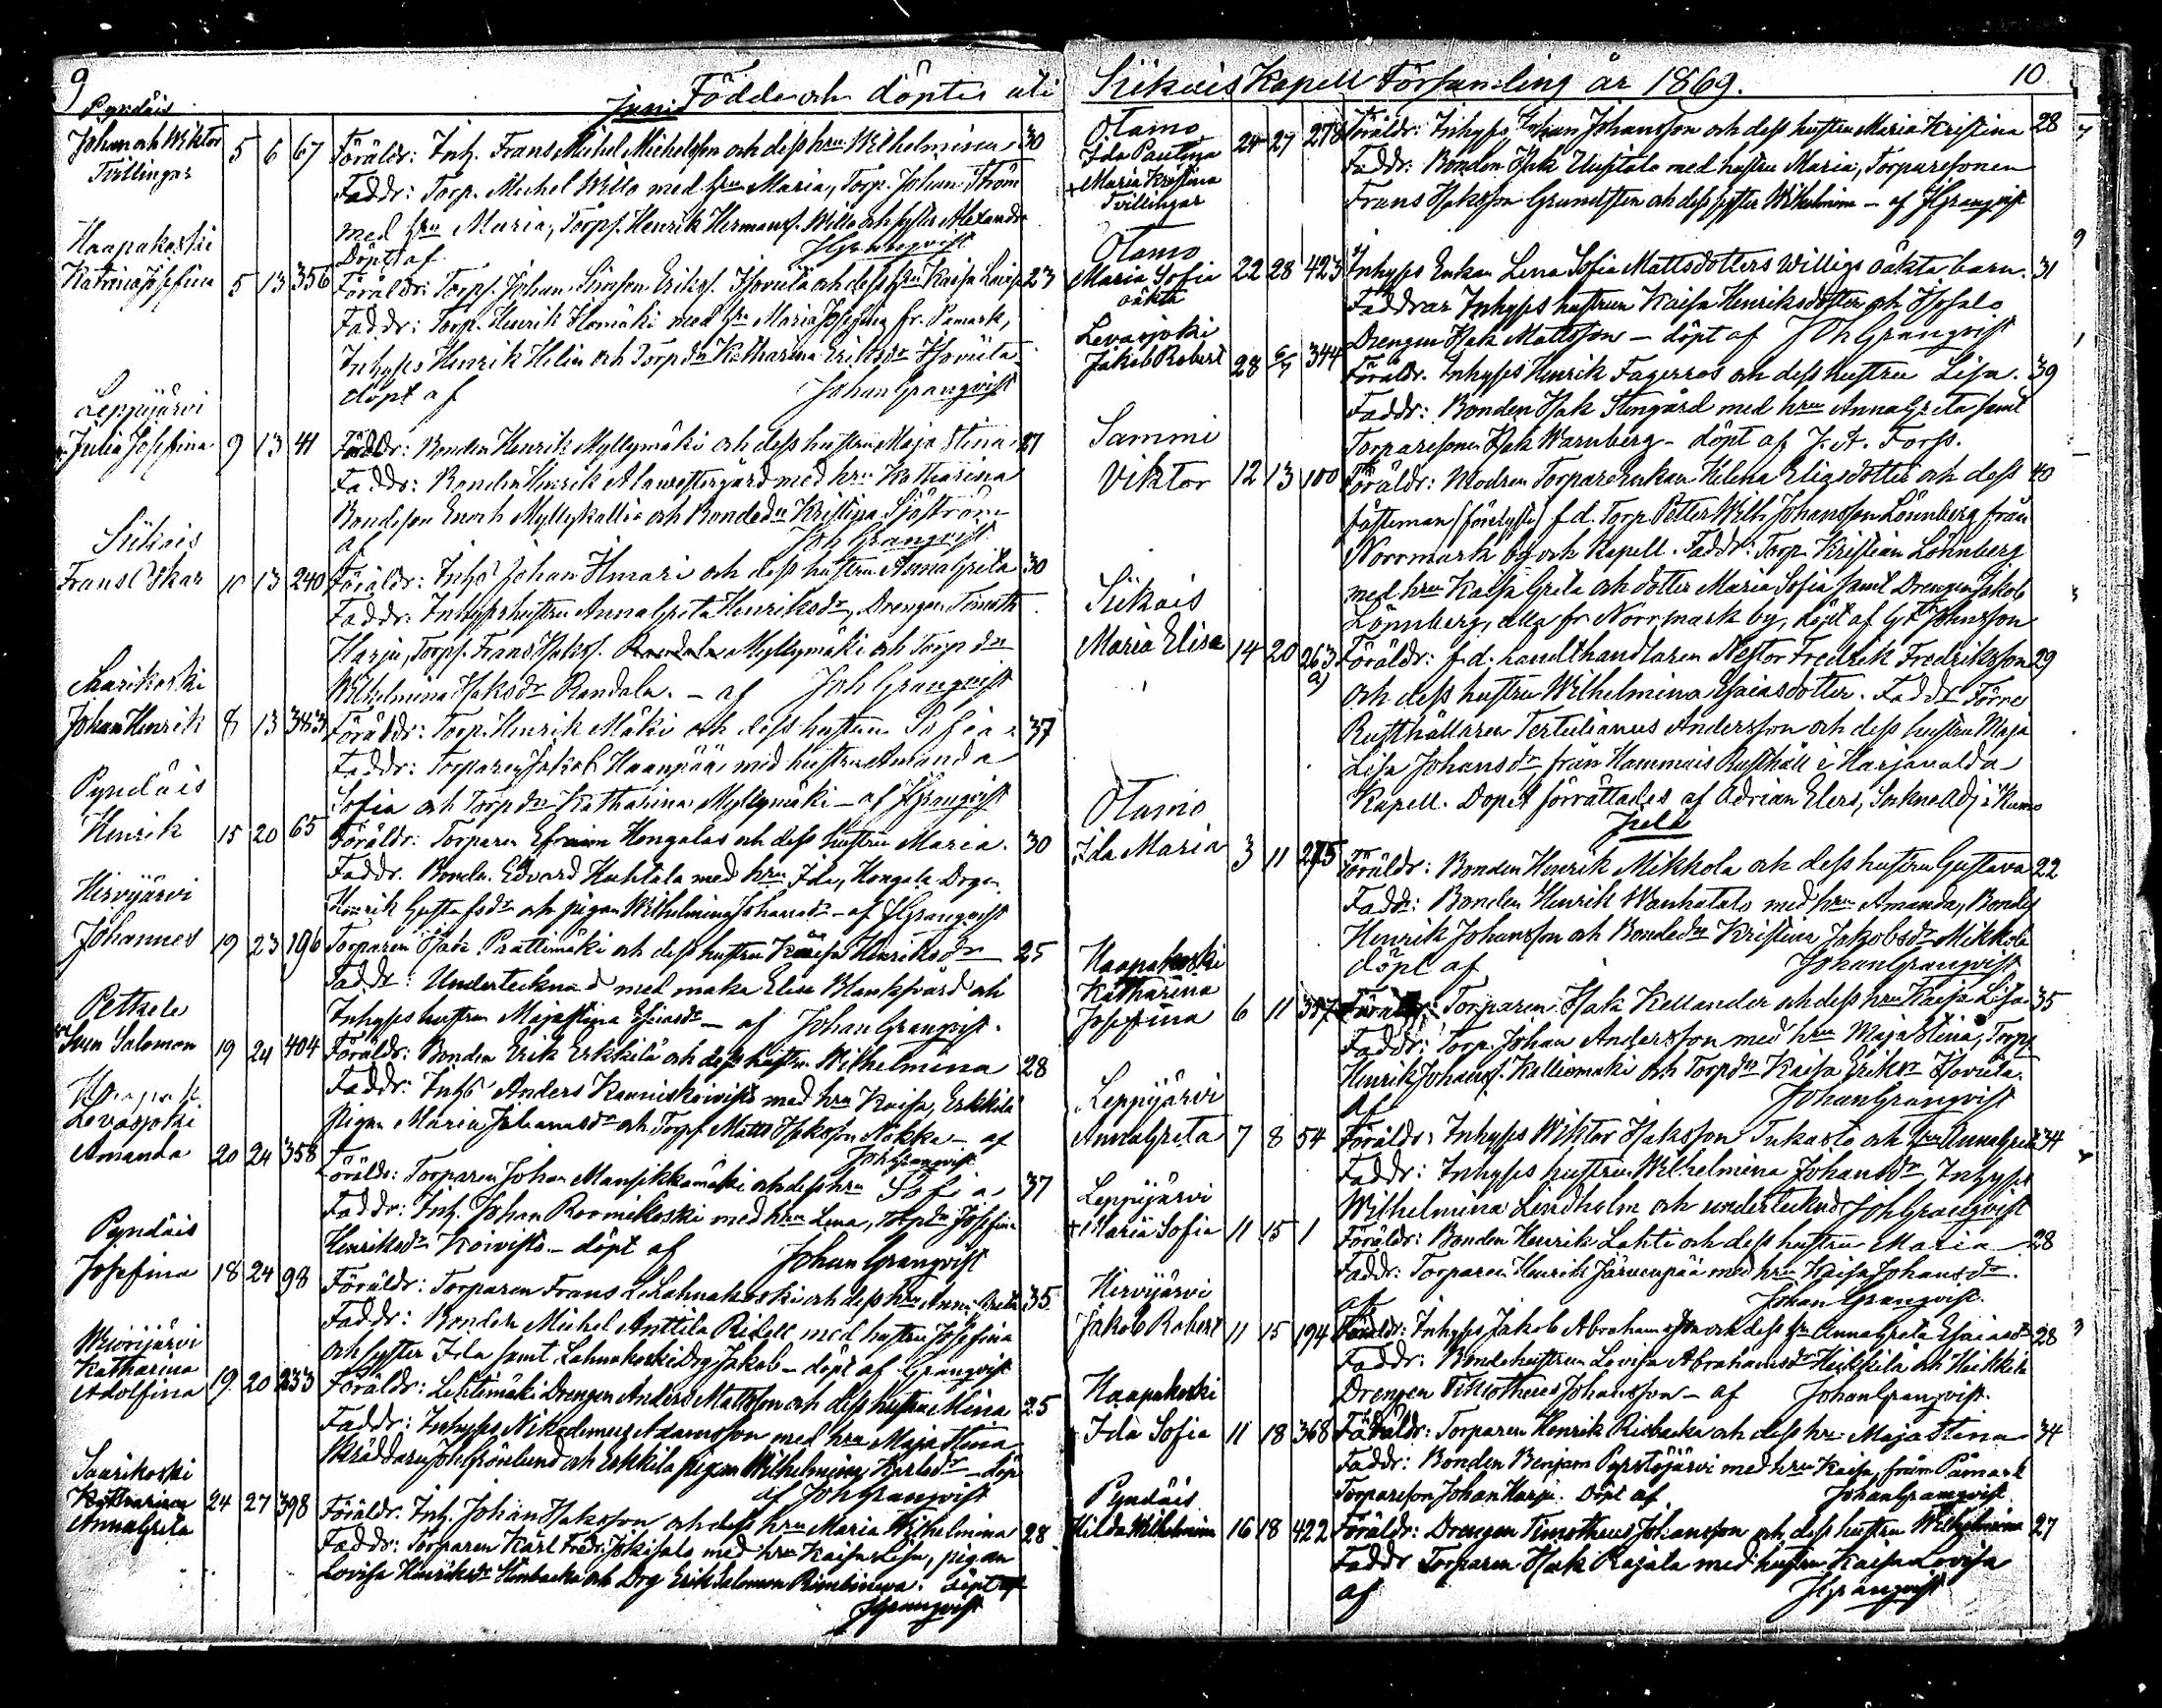 9
Födde och döpte uti
Juni
Pyndäis
Johan och Wiktor
Tvillingar
5 6 67
Föräldr: Inh. Frans Michel Michelsson och dess hru Wilhelmina 30
Faddr: Torp. Michel Willo med hru Maria, Torp. Johan Ström
med hru Maria, Torps. Henrik Hermanss. Willo och syster Alexandra
Döpt af JGranqvist
Haapakoski
Katrina Josefina
5 13 356
Föräldr: Torps. Johan Simson Erikss. Isoviita och dess hru Kaisa Lovisa 23
Faddr: Torp. Henrik Homäki med hru Maria Josefina fr. Pamark,
Inhyses Henrik Helin och Torp dr Katharina Eriksdr Isoviita
döpt af Johan Granqvist
Leppijärvi
Julia Josefina
9 13 41
Föräldr: Bonden Henrik Myllymäki och dess hustru Maja Stina 27
Faddr: Bonden Henrik Alawestergård med hru Katharina
Bondeson Enoch Myllykallio och Bondedr Kristina Sjöström
af Joh Granqvist
Siikais
Frans Oskar
10 13 240
Föräldr: Inhs Johan Ilmari och dess hustru Anna Greta 30
Faddr: Inhyseshustru Anna Greta Henriksdr, Drengen Timoth
Harju, Torps. Frans Isakss. Myllymäki och Torp dr
Wilhelmina Isaksdr Randala. - af Joh Granqvist
Saarikoski
Johan Henrik
8 13 383
Föräldr: Torp. Henrik Mäki och dess hustru Sofia 37
Faddr: Torparen Jakob Haanpää med hustru Amanda
Sofia och Torp dr Katharina Myllymäki - af JGranqvist
Pyndäis
Henrik
15 20 65
Föräldr: Torparen Efraim Hongalas och dess hustru Maria. 30
Faddr. Bonden Edvard Huhtala med hru Ida, Hongala Dreg.
Henrik Gustafsdr och pigan Wilhelmina Johansdr - af JGranqvist
Hirvijärvi
Johannes
19 23 196
Torparen Isak Prättimäki och dess hustru Kaisa Henriksdr 25
Faddr: Undertecknad med maka Elise Blankswärd och
Inhyses hustrun Majastina Esaiasdr - af Johan Granqvist.
Pethele
Sven Salomon
19 24 404
Föräldr: Bonden Erik Erkkilä och dess hustru Wilhelmina 28
Faddr: Inhs Anders Kauniskoivisto med hru Kaisa, Erkkilä
Pigan Maria Johansdr och Torps. Matts Isaksson Näkka - af
Joh Granqvist
Levasjoki
Amanda
20 24 358
Föräldr: Torparen Johan Mansikkamäki och dess hru Sofia 37
Faddr: Inh. Johan Rovinikoski med hru Lena, Torp dr Josefina
Henriksdr Koivisto - döpt af Johan Granqvist
Pyndäis
Josefina
18 24 98
Föräldr: Torparen Frans Lahnakoski och dess hru Anna Greta 35
Faddr: Bonden Michel Anttila Ridell med hustru Josefina
och syster Ida samt Lahnakoski Dreg Jakob - döpt af Granqvist
Wuorijärvi
Katharina
Adolfina
19 20 233
Föräldr: Lehtimäki Drengen Anders Mattsson och dess hustru Mina 25
Faddr: Inhyses Nikodemus Adamsson med hru Maja Stina
Skräddaren Joh Grönlund och Erkkila pigan Wilhelmina Karlsdr - döpt
af Joh Granqvist
Saarikoski
Katharina
Anna Greta
24 27 398
Föräldr. Inh. Johan Isaksson och dess hru Maria Wilhelmina 28
Faddr: Torparen Karl Fredr. Jokisalo med hru Kaisa Lisa, pigan
Lovisa Henriksdr Stenbacka och Drg Erik Salomon Rimbineva. döpt af
JGranqvist
Siikais Kapell Församling år 1869.
10
Otamo
Ida Paulina
+ Maria Kristina
Tvillingar
24 27 278
Föräldr: Inhyses Johan Johansson och dess hustru Maria Kristina 28
Faddr: Bonden Isak Uusitalo med hustru Maria, Torparesonen
Frans Isaksson Grundsten och dess syster Wilhelmina - af JGranqvist
Otamo
Maria Sofia
oäkta
22 28 423
Inhyses Enkan Lena Sofia Mattsdotters Willigs oäkta barn. 31
Faddrar Inhyses hustrun Kaisa Henriksdotter och Isosalo
Drengen Isak Mattsson - döpt af Joh Granqvist
Levasjoki
Jakob Robert
28 6/7 344
Föräldr. Inhyses Henrik Fagerros och dess hustru Lisa. 39
Faddr: Bonden Isak Stengård med hru Anna Greta samt
Torparesonen Isak Warnberg - döpt af J. A. Forss.
Sammi
Viktor
12 13 100
Föräldr: Modren Torpareenkan Helena Eliasdotter och dess 40
fästeman (förelyste) f.d. Torp. Petter Wilh Johansson Lönnberg från
Norrmark by och Kapell. Faddr: Torp. Kristian Lönnberg
med hru Kaisa Greta och dotter Maria Sofia samt Drengen Jakob
Lönnberg, alla fr Norrmark by, döpt af G F Johnsson
Siikais
Maria Elisa
14 20 263
Föräldr: f.d. handlhandlaren Nestor Fredrik Fredriksson 29
och dess hustru Wilhelmina Esaiasdotter. Faddr Förre
Rusthållaren Tertulianus Andersson och dess hustru Maja
Lisa Johansdr från Hammais Rusthåll i Harjavalda
Kapell. Dopet förrättades af Adrian Elers, Sockneadj i Kumo
Juli
Otamo
Ida Maria
3 11 275
Föräldr: Bonden Henrik Mikkola och dess hustru Gustava 22
Faddr: Bonden Henrik Wanhatalo med hru Amanda, Bondes.
Henrik Johansson och Bondedr Kristina Jakobsdr Mikkola
döpt af Johan Granqvist
Haapakoski
Katharina
Josefina
6 11 357
Föräldr: Torparen Isak Kellander och dess hru Kaisa Lisa 35
Faddr: Torp. Johan Andersson med hru Maja Stina, Torps
Henrik Johanss. Kalliomäki och Torp dr Kaisa Eriksdr Isoviita.
af Johan Granqvist
Leppijärvi
Anna Greta
7 8 54
Föräldr: Inhyses Wiktor Isaksson Tukasto och hru Anna Greta 34
Faddr: Inhyses hustrun Wilhelmina Johansdr, Inhyses
Wilhelmina Lindholm och undertecknad Joh Granqvist
Leppijärvi
+ Maria Sofia
11 15 1
Föräldr: Bonden Henrik Lahti och dess hustru Maria 28
Faddr: Torparen Henrik Järvenpää med hru Kaisa Johansdr.
af Johan Granqvist.
Hirvijärvi
Jakob Robert
11 15 194
Föräldr: Inhyses Jakob Abrahamsson och dess hru Anna Greta Esaiasdr 28
Faddr: Bondehustrun Lovisa Abrahamsdr Heikkilä och Heikkilä
Drengen Timotheus Johansson - af Johan Granqvist.
Haapakoski
Ida Sofia
11 18 368
Föräldr: Torparen Henrik Risbacka och dess hru Maja Stina 34
Faddr: Bonden Benjam Pyrstöjärvi med hru Kaisa, från Påmark
Torpareson Johan Harju. Döpt af Johan Granqvist
Pyndäis
Hilda Wilhelmina
16 18 422
Föräldr: Drengen Timotheus Johansson och dess hustru Wilhelmina 27
Faddr Torparen Isak Rajala med hustru Kaisa Lovisa
af JGranqvist